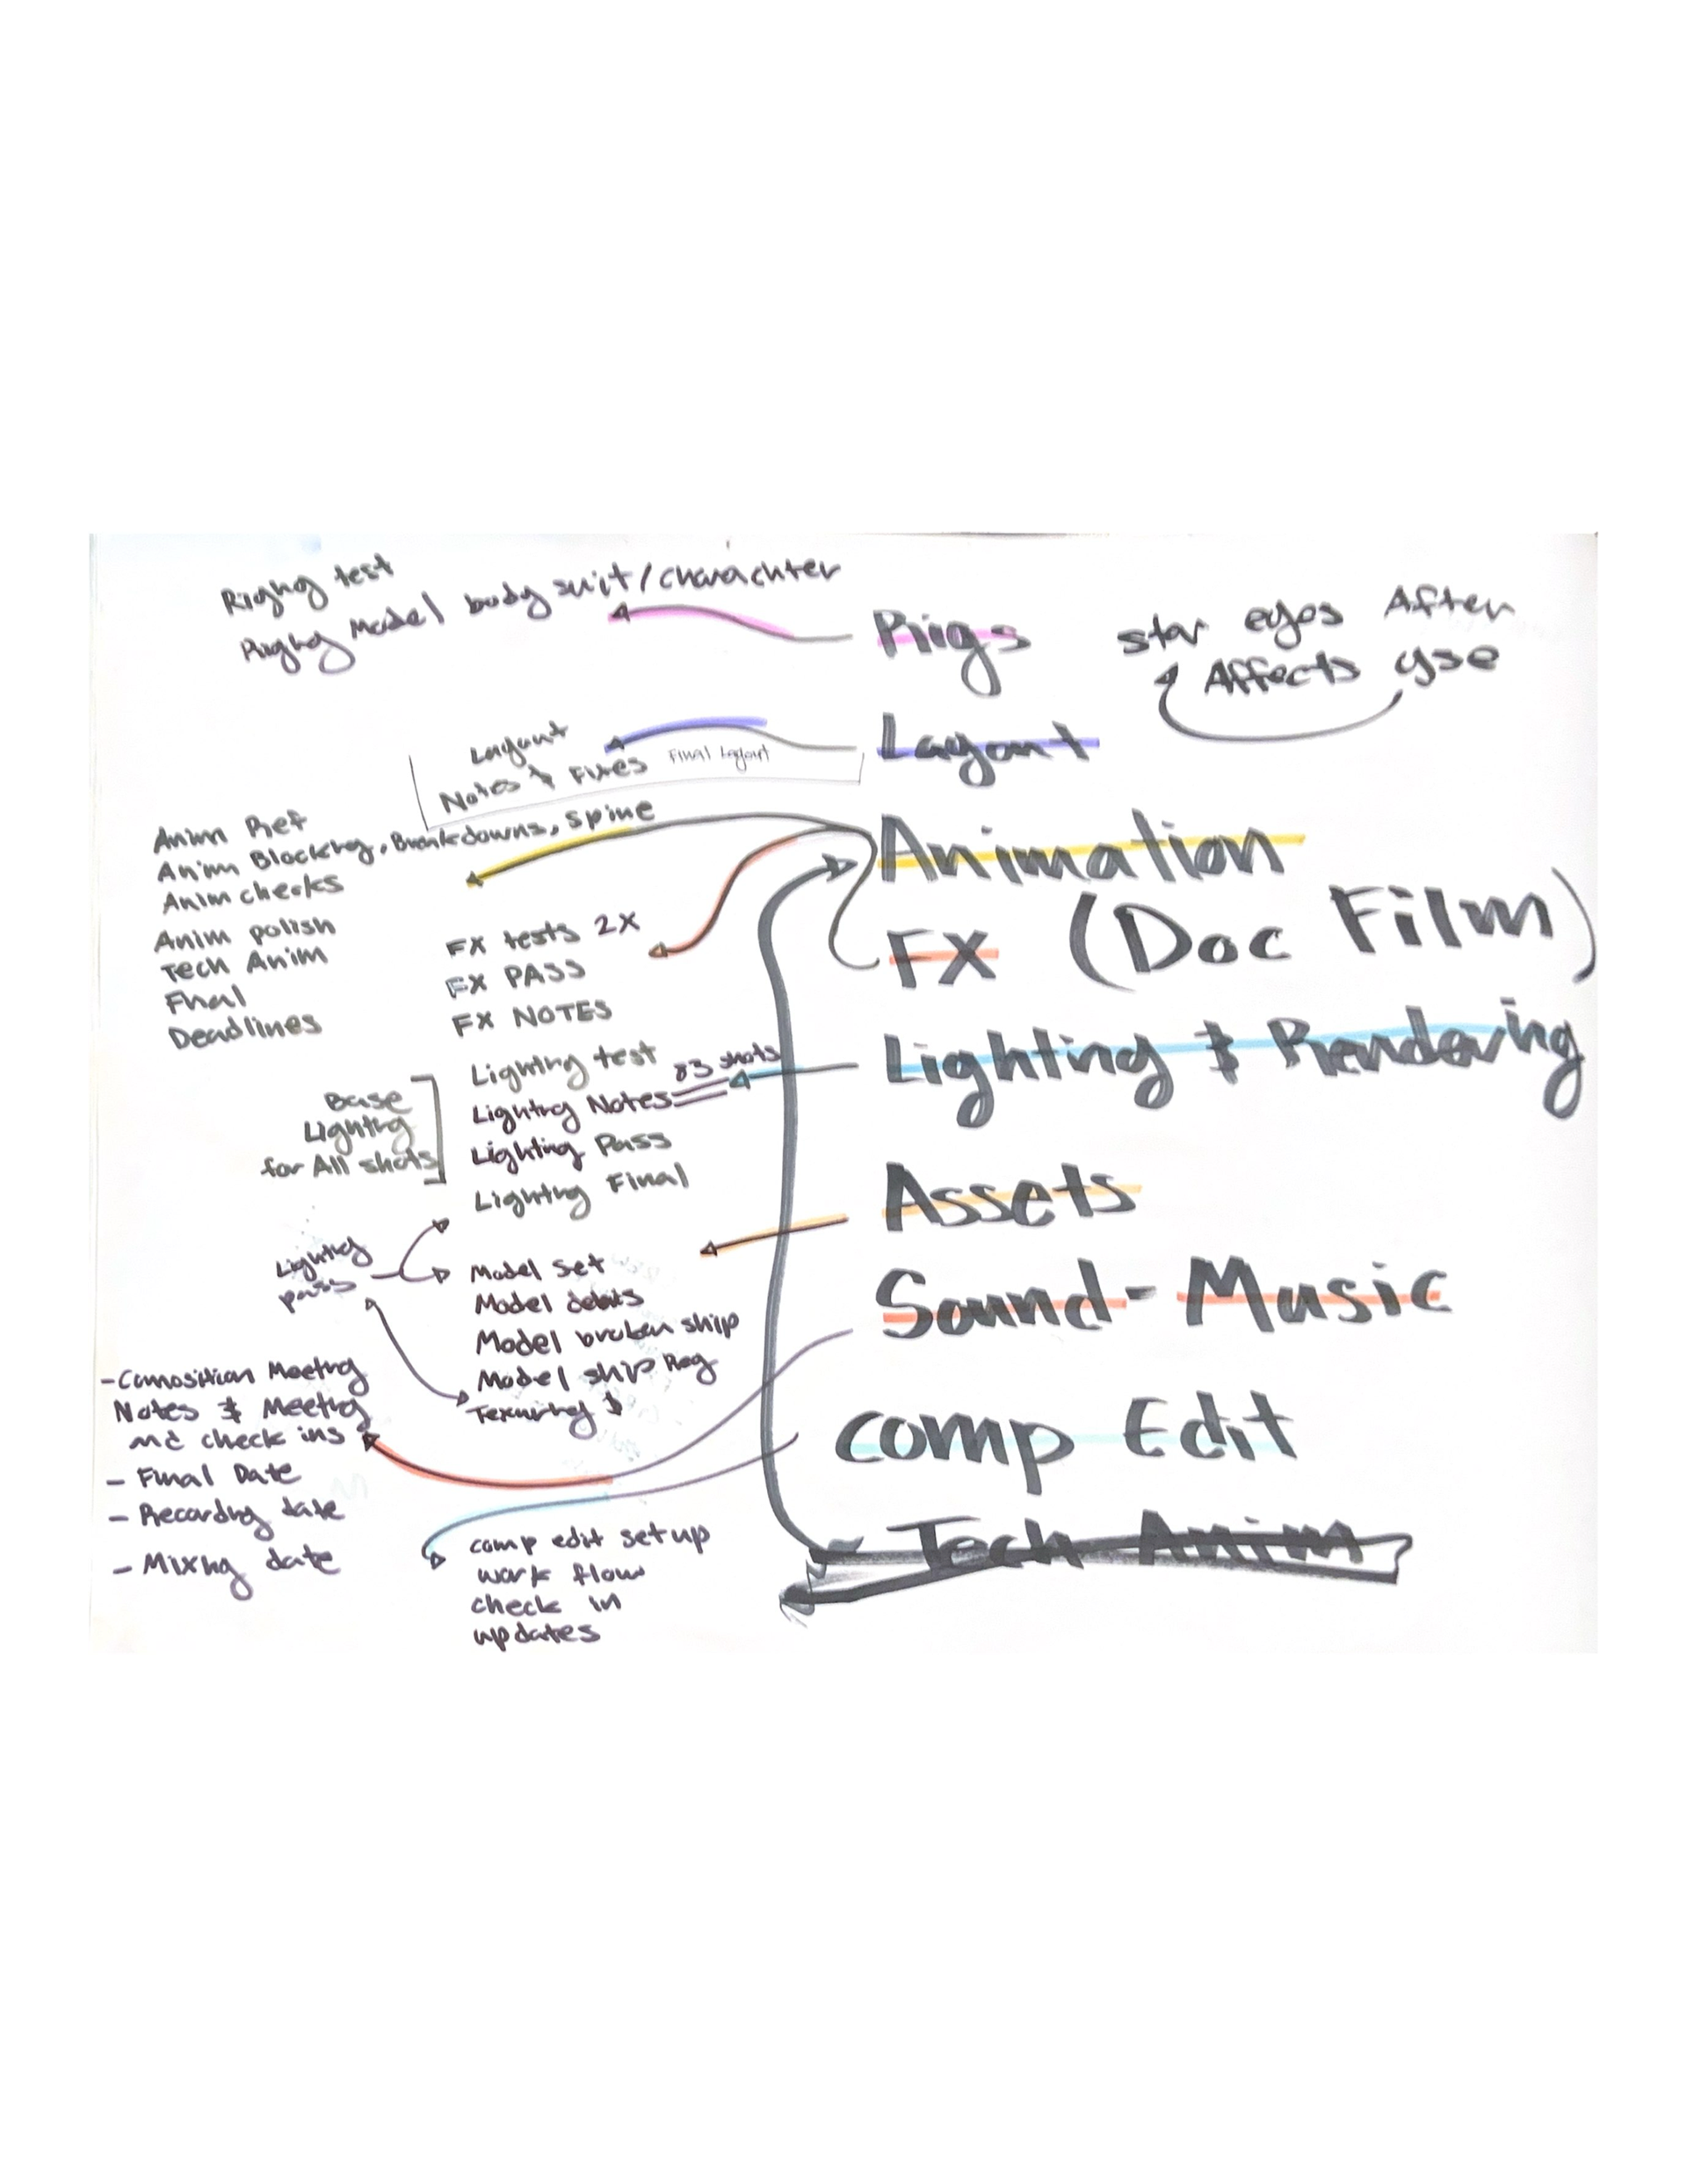 Righg test
Righg Model body suit / charachter
Rigs
star eyes After
Affects use
Layout
Notes & Fixes
Final Layout
Layout
Anim Ref
Anim Blocking, Breakdowns, spine
Anim checks
Anim polish
Tech Anim
Final
Deadlines
Animation
FX tests 2X
FX PASS
FX NOTES
FX (Doc Film)
Lighting test
Lighting Notes
83 shots
Lighting Pass
Lighting Final
Base
Lighting
for All shots
Lighting & Rendering
Lighting
pass
Assets
Model Set
Model debris
Model broken ship
Model ship Reg
Texturing &
Sound - Music
- Comosition Meeting
Notes & Meeting
check ins
- Final Date
- Recording date
- Mixing date
comp Edit
comp edit set up
work flow
check in
updates
Tech Anim